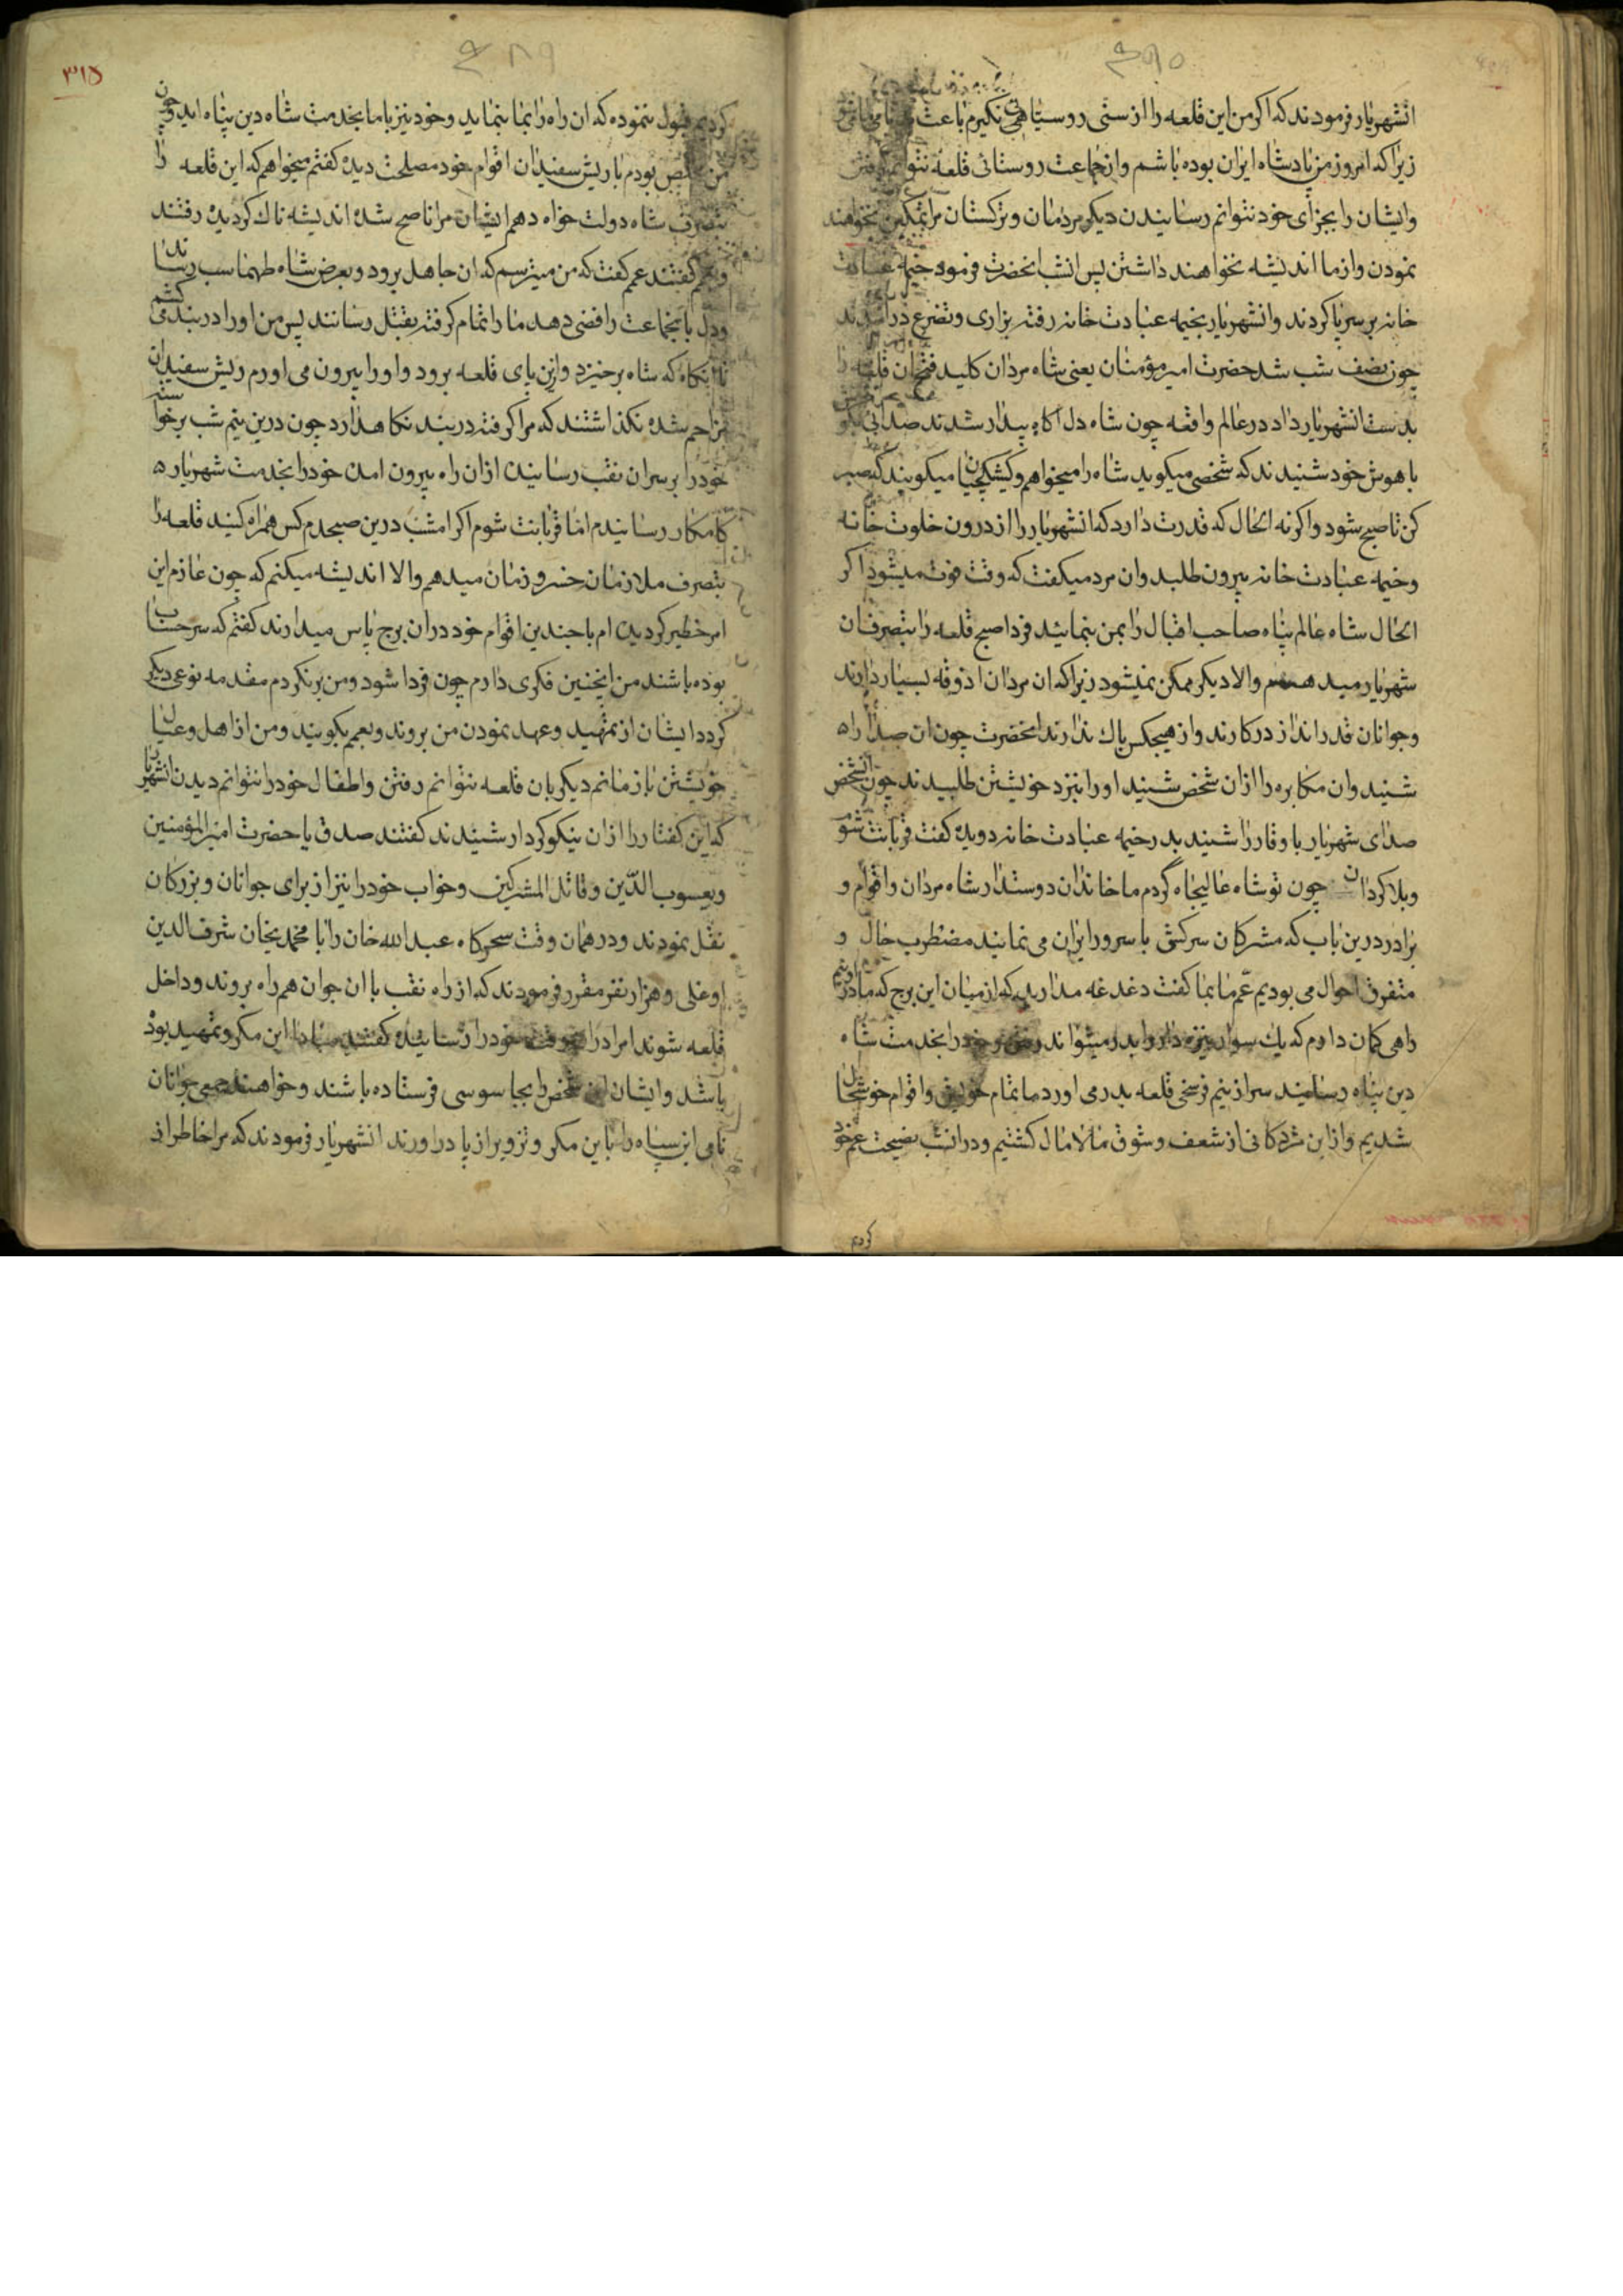 انشهریار فرمودند که اکر من این قلعه را از سنی روسیاهی نکیرم باعث
زیرا که امروز من پادشاه ایران بوده باشم و از جماعت روستائی قلعه نتوانم کرفتن
وایشان را بجزای خود نتوانم رسانیدن دیکر مردمان وترکستان مرا تمکین نخواهند
نمودن واز ما اندیشه نخواهند داشتن پس انشب انحضرت فرمود خیمه عبادت
خانه بر سر پا کردند وانشهریار بخیمه عبادت خانه رفته بزاری وتضرع درامدند
چون نصف شب شد حضرت امیر مؤمنان یعنی شاه مردان کلید فتح ان قلعه را
بدست انشهریار داد در عالم واقعه چون شاه دل اکاه بیدار شدند صدائی
باهوش خود شنیدند که شخصی میکوید شاه را میخواهم وکشیکچیان میکویند که صبر
کن تا صبح شود واکر نه الحال که قدرت دارد که انشهریار را از درون خلوت خانه
وخیمه عبادت خانه بیرون طلبد وان مرد میکفت که وقت فوت میشود اکر
الحال شاه عالم پناه صاحب اقبال را بمن بنمائید فردا صبح قلعه را بتصرف ان
شهریار میدهم والا دیکر ممکن نمیشود زیرا که ان مردان اذوقه بسیار دارند
وجوانان قدرانداز در کارند واز هیچکس باک ندارند انحضرت چون ان صدا را
شنید وان مکابره را از ان شخص شنید اورا بنزد خویشتن طلبیدند چون انشخص
صدای شهریار با وقار را شنید بدر خیمه عبادت خانه دویده کفت قربانت شوم
وبلا کردان چون تو شاه عالیجاه گردم ما خاندان دوستدار شاه مردان واقوام و
برادر درین باب که مشرکان سرکش با سرور ایران می نمایند مضطرب حال و
متفرق احوال می بودیم عم ما بما کفت دغدغه مدارید که از میان این برج که ما دروئیم
راهی کمان دارم که یک سوار نیزه دار وا بدر میتواند رفتن وخود را بخدمت شاه
دین پناه رسانیند سر از نیم فرسخی قلعه بدر می اورد ما تمام خویش واقوام خوشحال
شدیم واز این مژدکانی از شعف وشوق مالامال کشتیم ودر انشب نصیحت عم خود
کردم
۳۱۵
کردیم قبول ننموده که ان راه را بما بنماید وخود نیز با ما بخدمت شاه دین پناه اید وچون
من مخلص بودم با ریش سفیدان اقوام خود مصلحت دیده کفتم میخواهم که این قلعه را
بتصرف شاه دولت خواه دهم ایشان مرا ناصح شده اندیشه ناک کردیده رفتند
وبعمم کفتند عمم کفت که من میترسم که ان جاهل برود وبعرض شاه طهماسب رساند
ودل باینجماعت رافضی دهد ما را تمام کرفته بقتل رسانند پس من اورا در بند می کشم
تا انکاه که شاه برخیزد وازین پای قلعه برود واورا بیرون می اورم ریش سفیدان
مزاحم شده نکذاشتند که مرا کرفته در بند نکاهدارد چون درین نیم شب برخواسته
خود را بر سر ان نقب رسانیده از ان راه بیرون امده خود را بخدمت شهریار
کامکار رسانیدم اما قربانت شوم اکر امشب درین صبحدم کس همراه کنید قلعه را
بتصرف ملازمان خسرو زمان میدهم والا اندیشه میکنم که چون عازم این
امر خطیر کردیده ام با چندین اقوام خود در ان برج پاس میدارند کفتم که سر حساب
بوده باشند من اینچنین فکری دارم چون فردا شود ومن برنکردم مقدمه نوعی دیکر
کردد ایشان از تمهید وعهد نمودن من بروند وبعمم بکویند ومن از اهل وعیال
خویشتن باز مانم دیکر بان قلعه نتوانم رفتن واطفال خود را نتوانم دیدن انشهریار
که این کفتار را از ان نیکو کردار شنیدند کفتند صدق یا حضرت امیرالمؤمنین
ویعسوب الدین وقاتل المشرکین وخواب خود را نیز از برای جوانان وبزرکان
نقل نمودند ودر همان وقت سحرکاه عبدالله خان را با محمدیخان شرف الدین
اوغلی وهزار نفر مقرر فرمودند که از راه نقب با ان جوان همراه بروند وداخل
قلعه شوند امرا در خود را رسانیده کفتند مبادا این مکر وتمهید بوده
باشد وایشان این شخص را بجاسوسی فرستاده باشند وخواهند جمعی جوانان
نامی این سپاه را باین مکر وتزویر از پا در اورند انشهریار فرمودند که مرا خاطر از